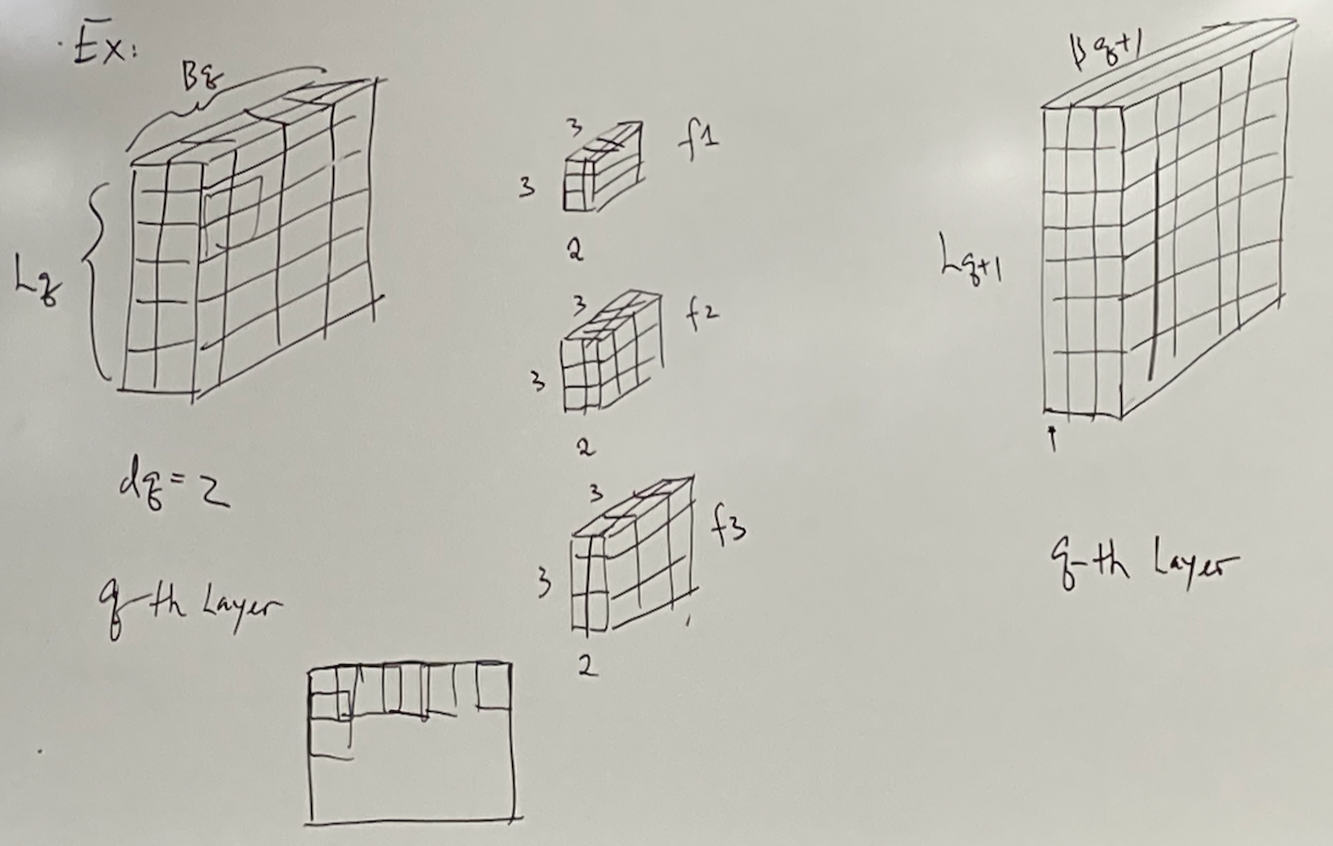 Ex:
Bq
Lq
dq = 2
q-th Layer
3
3
f1
2
3
3
f2
2
3
3
f3
2
Bq+1
Lq+1
q-th Layer